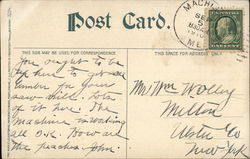 Post Card.
THIS SIDE MAY BE USED FOR CORRESPONDENCE
THIS SPACE FOR ADDRESS ONLY
MACHI
ME
You ought to be
up here to get
lumber for your
saw mill. lots
of it here. The
Machine is working
all O.K. How are
the peaches John.
Mr Wm Wolley
Milton
Ulster Co
New York